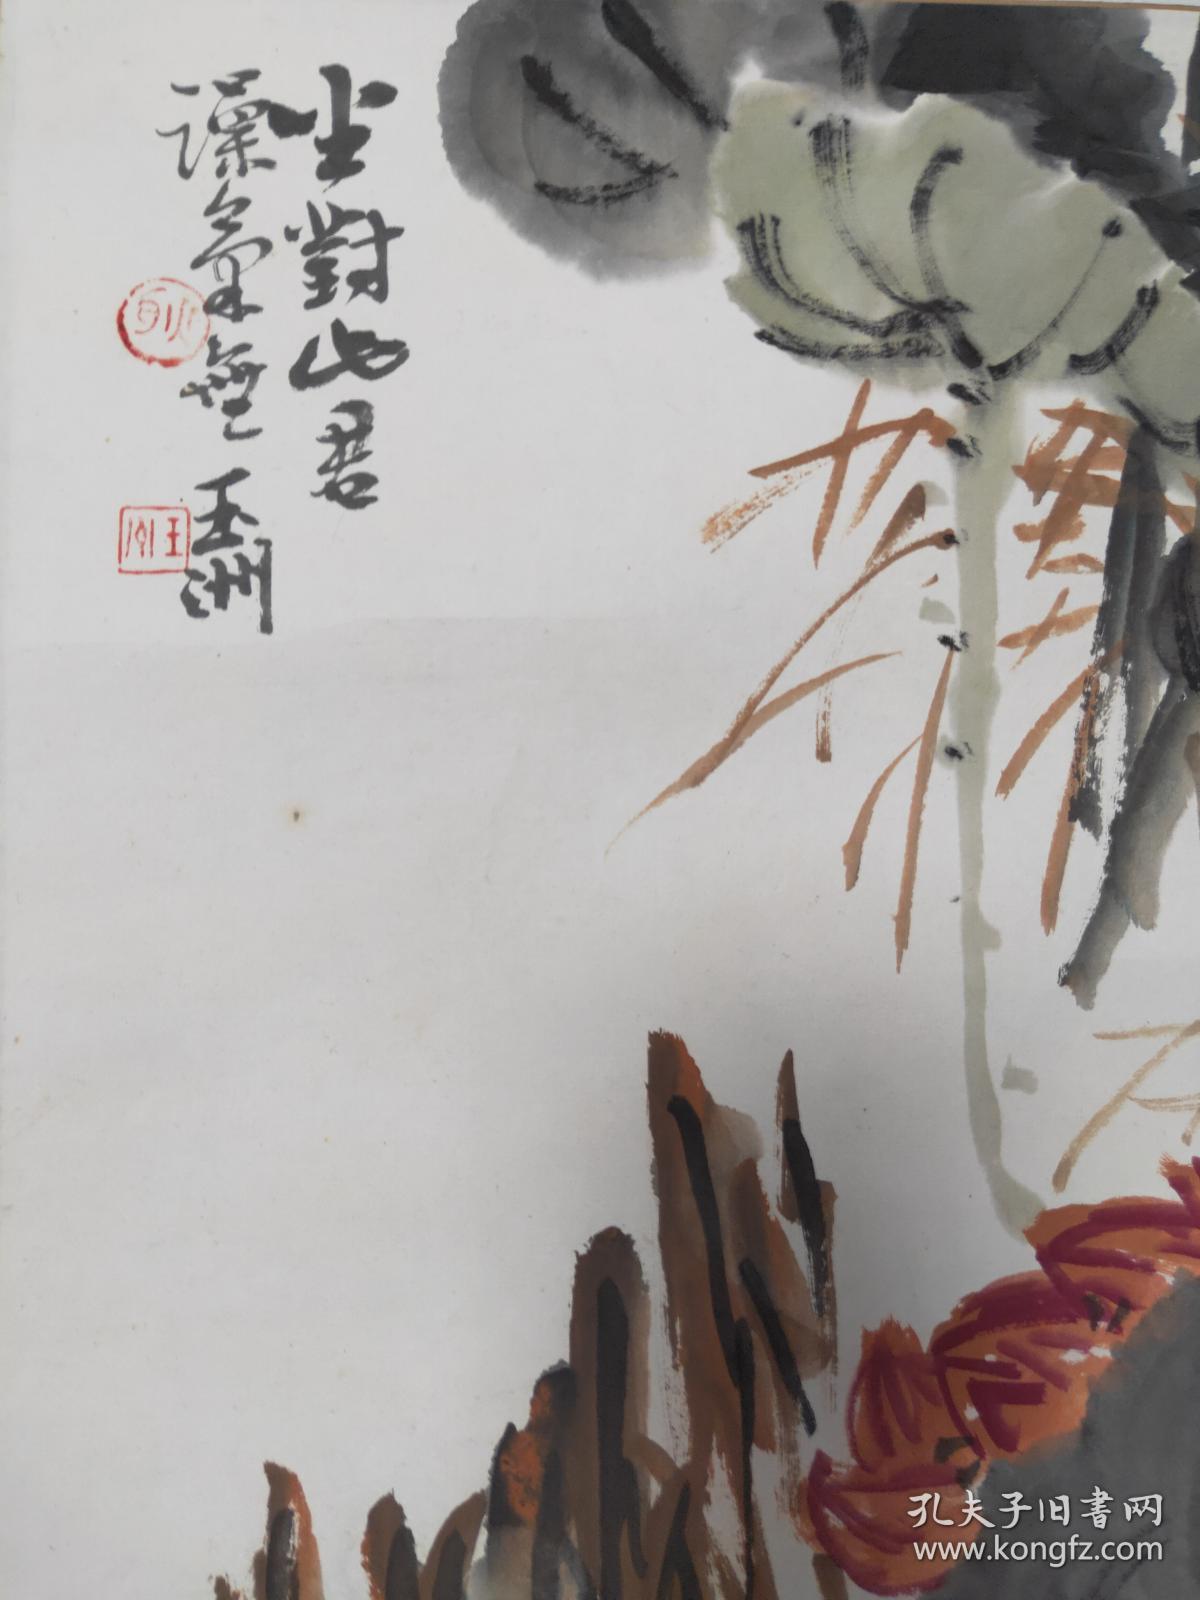 坐對此君
譟氣無 玉洲
孔夫子旧書网
www.kongfz.com